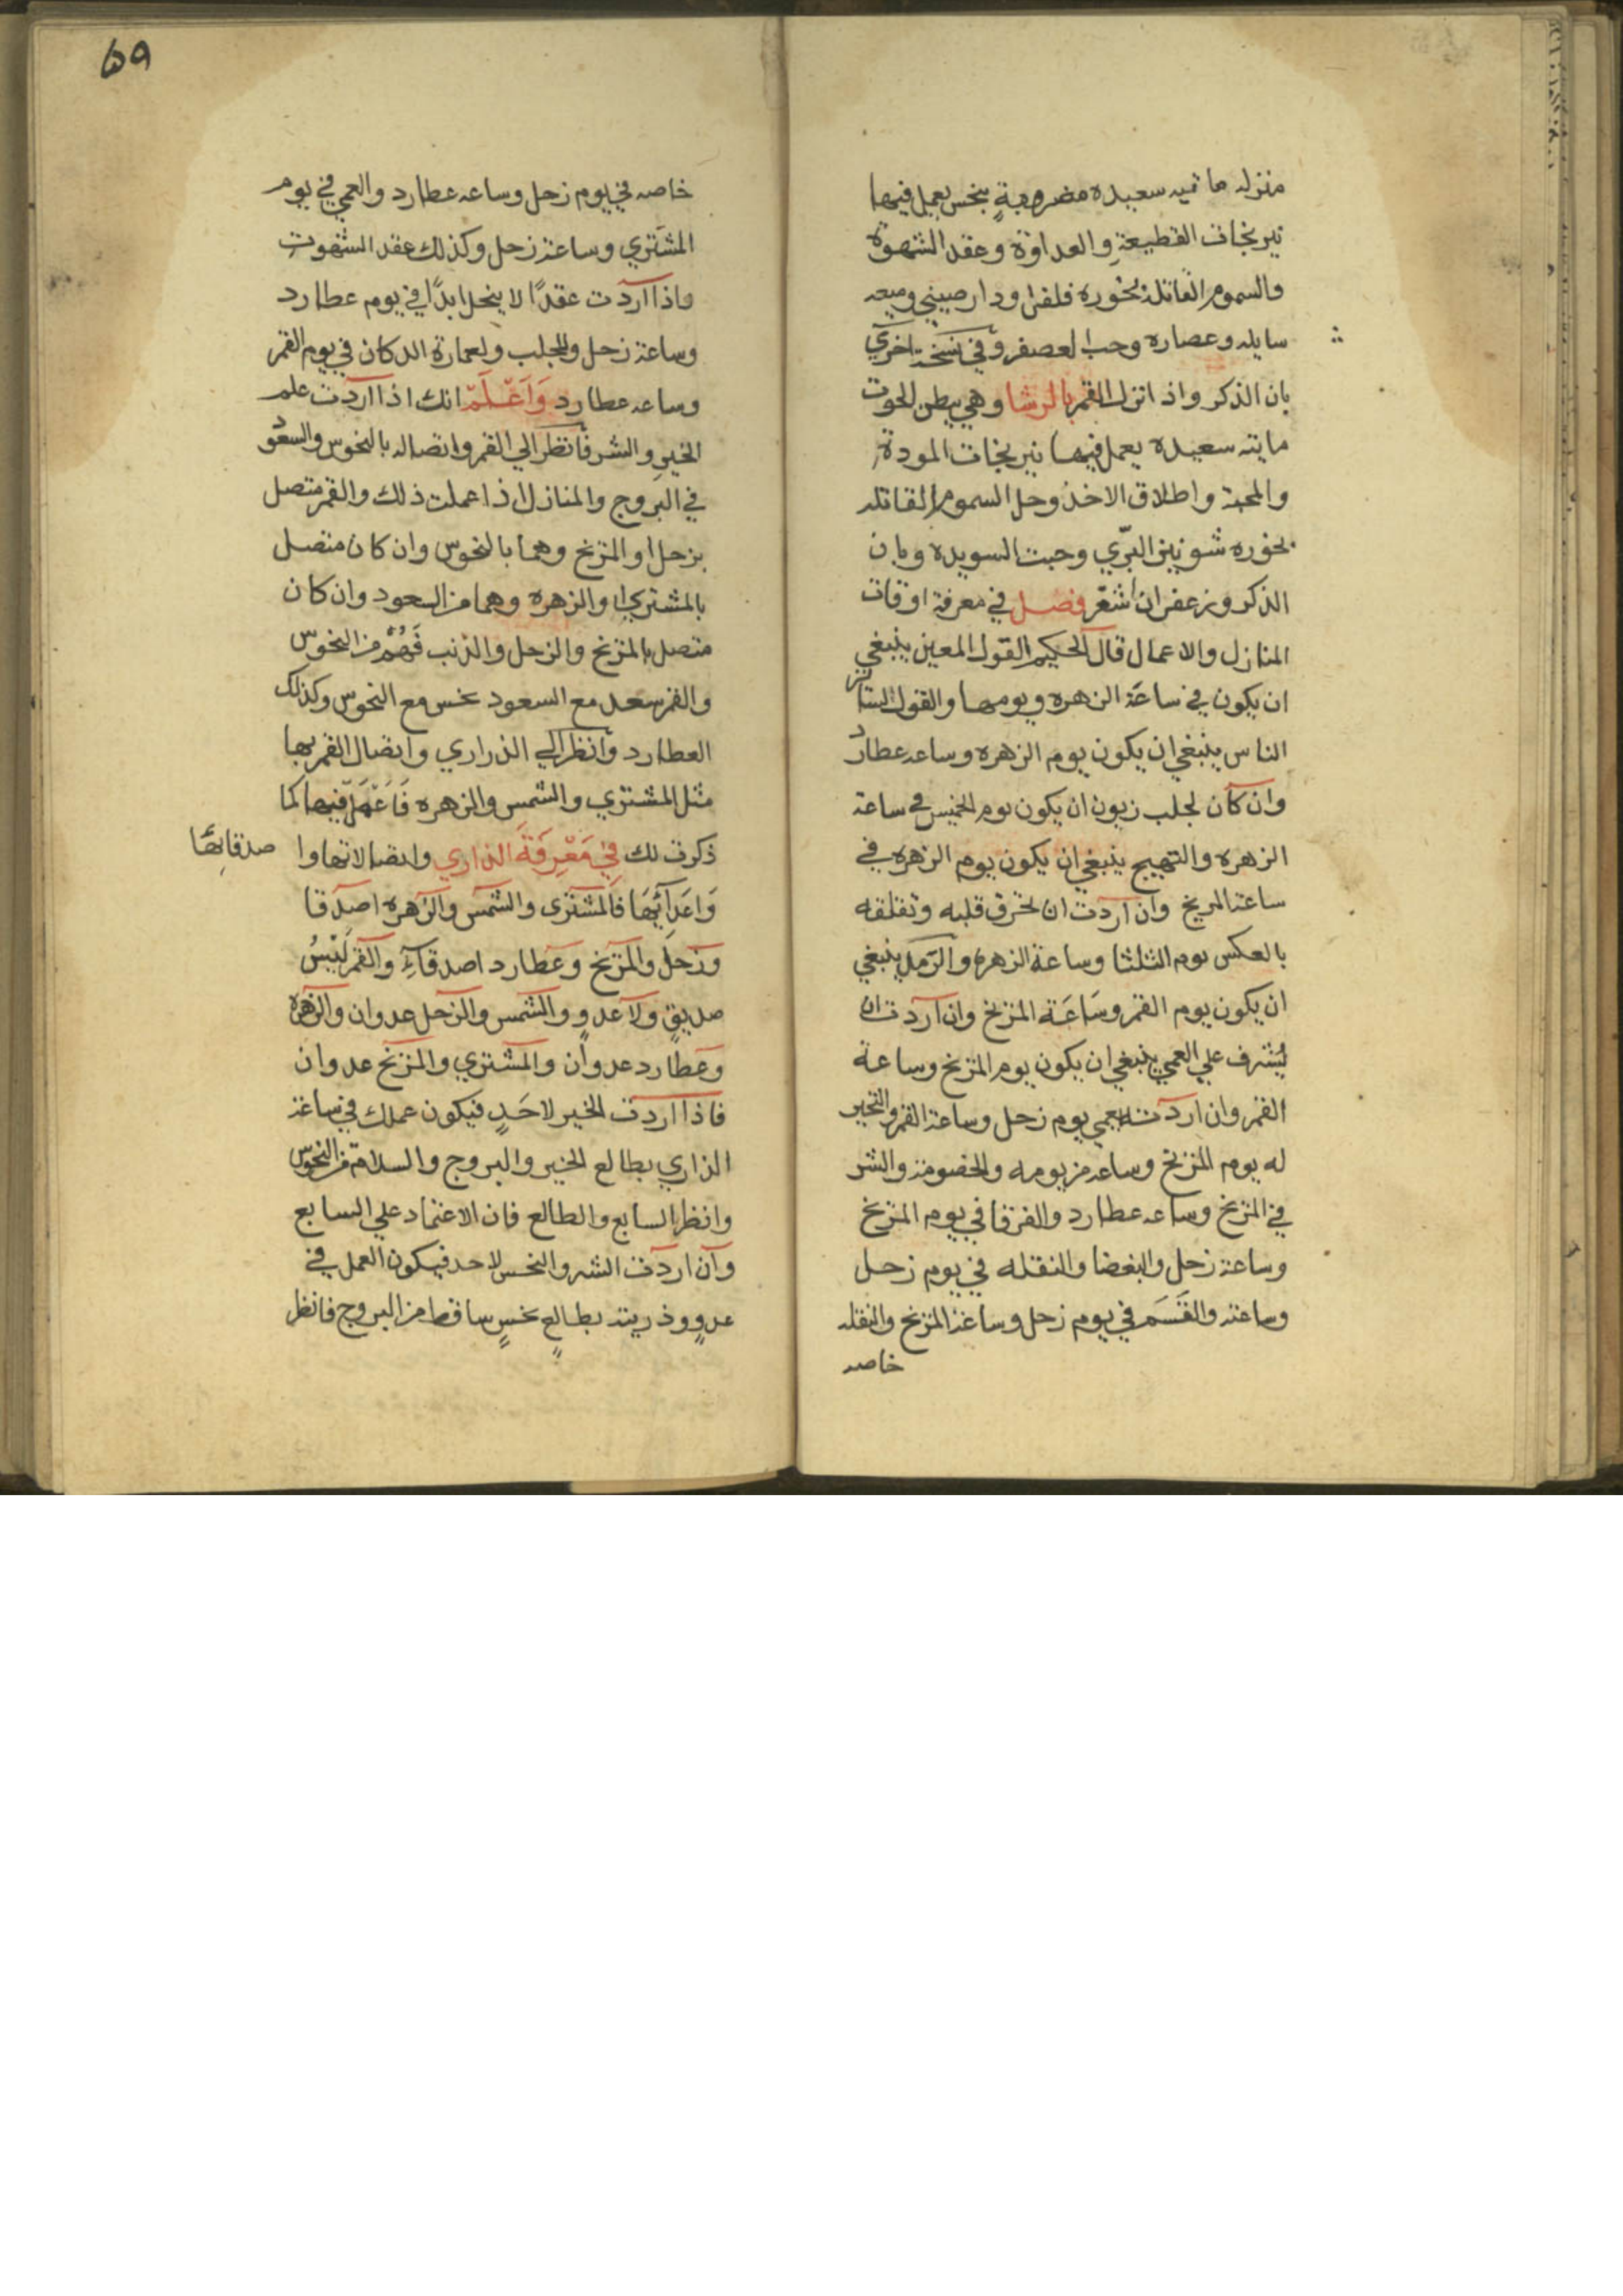 منزله مائيه سعيده مضروبةٍ بنحس يعمل فيها
نيرنجات القطيعة والعداوة وعقد الشهوة
والسموم القاتلة بخوره فلفل ودار صيني وميعه
سايله وعصاره وحب العصفر وفي نسخة اخري
بان الذكر واذا نزل القمر بالرشا وهي بطن الحوت
مايته سعيده يعمل فيها نيرنجات المودة
والمحبة واطلاق الاخذ وحل السموم القاتله
بخوره شونيز البرّي وحبت السويده وبان
الذكر وزعفران شعر فصل في معرفة اوقات
المنازل والاعمال قال الحكيم القول المعين ينبغي
ان يكون في ساعة الزهره ويومها والقول السائر
الناس ينبغي ان يكون يوم الزهره وساعه عطارد
وان كان لجلب زبون ان يكون يوم الخميس في ساعة
الزهره والتهييج ينبغي ان يكون يوم الزهره في
ساعة المريخ وان اردت ان تحرق قلبه وتقلقه
بالعكس يوم الثلثا وساعة الزهره والرّمل ينبغي
ان يكون يوم القمر وسَاعَة المريخ وان اردت ان
يُشرف علي العمي ينبغي ان يكون يوم المريخ وساعة
القمر وان اردت يعمي يوم زحل وساعة القمر والتحير
له يوم المريخ وساعه من يومه والخصومة والشر
في المريخ وساعه عطارد والفرقا في يوم المريخ
وساعة زحل والبغضا والنقله في يوم زحل
وساعته والقَسَم في يوم زحل وساعة المريخ والنقله
خاصه
ﻩ٩
خاصه في يوم زحل وساعه عطارد والعمي في يوم
المشتري وساعة زحل وكذلك عقد الشهوت
واذا اردت عقدًا لا ينحل ابدًا في يوم عطارد
وساعة زحل وللجلب ولعمارة الدكان في يوم القمر
وساعه عطارد وَاَعْلَمْ انك اذا اردت علم
الخير والشر فانظر الي القمر واتصاله بالنحوس والسعود
في البروج والمنازل اذا عملت ذلك والقمر متصل
بزحل او المريخ وهما بالنحوس وان كان متصل
بالمشتري او الزهره وهما من السعود وان كان
متصل بالمريخ والزحل والذنب فَهُمْ من النحوس
والقمر سعد مع السعود نحس مع النحوس وكذلك
العطارد وانظر الي الذراري واتصال القمر بها
مثل المشتري والشمس والزهره فَاعْمَل فيها كما
ذكرت لك في مَعْرِفَةَ الذاري واتصالاتها وا صدقائِها
وَاَعَدَائَهَا فالمشتري والشمس والزهره اصدقا
وزحل والمريخ وعطارد اصدقاءِ والقمر لَيْسُ
صديقٍ ولا عدوٍ والشمس والزحل عدوان والزهره
وعطارد عدوان والمشتري والمريخ عدوان
فاذا اردت الخير لاحَدٍ فيكون عملك في ساعة
الذاري بطالع الخير والبروج والسلامة من النحوس
وانظر السابع والطالع فان الاعتماد علي السابع
وان اردت الشر والنحس لاحد فيكون العمل في
عدوٍ وذريته بطالعٍ نحسٍ ساقط من البروج فانظر